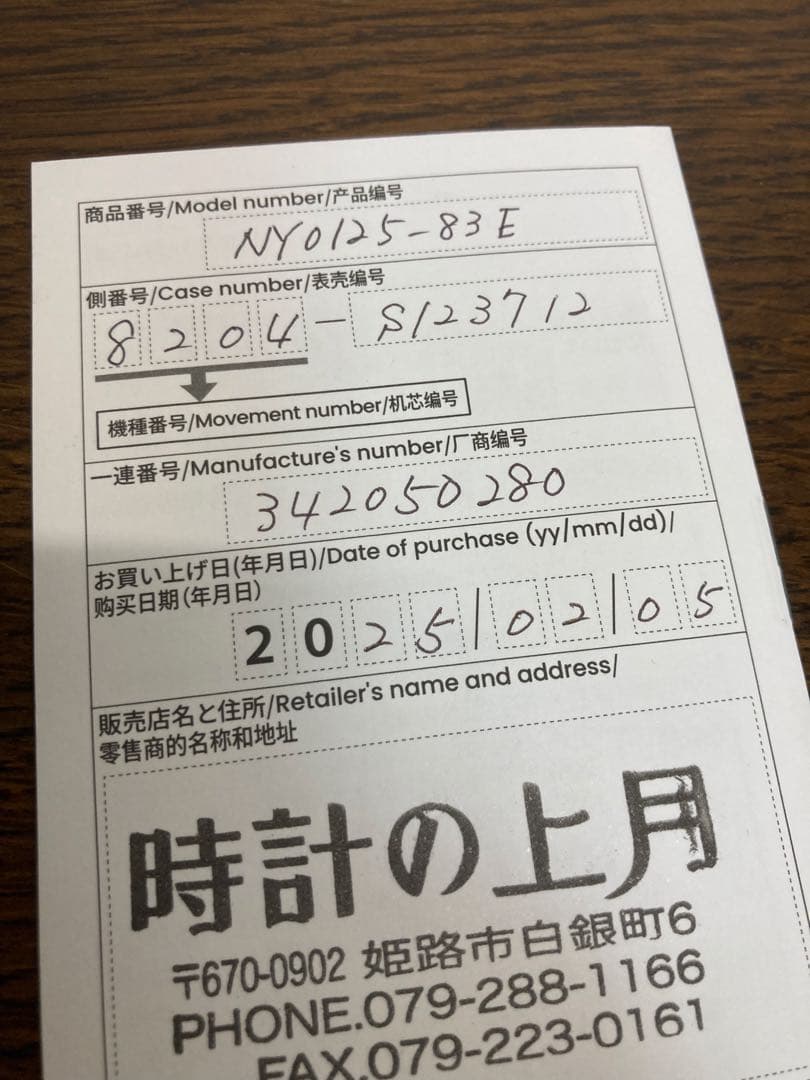 商品番号/Model number/产品编号
NY0125-83E
側番号/Case number/表壳编号
8204-S123712
機種番号/Movement number/机芯编号
一連番号/Manufacture's number/厂商编号
342050280
お買い上げ日(年月日)/Date of purchase (yy/mm/dd)/
购买日期(年月日)
2025/02/05
販売店名と住所/Retailer's name and address/
零售商的名称和地址
時計の上月
〒670-0902 姫路市白銀町6
PHONE.079-288-1166
FAX.079-223-0161